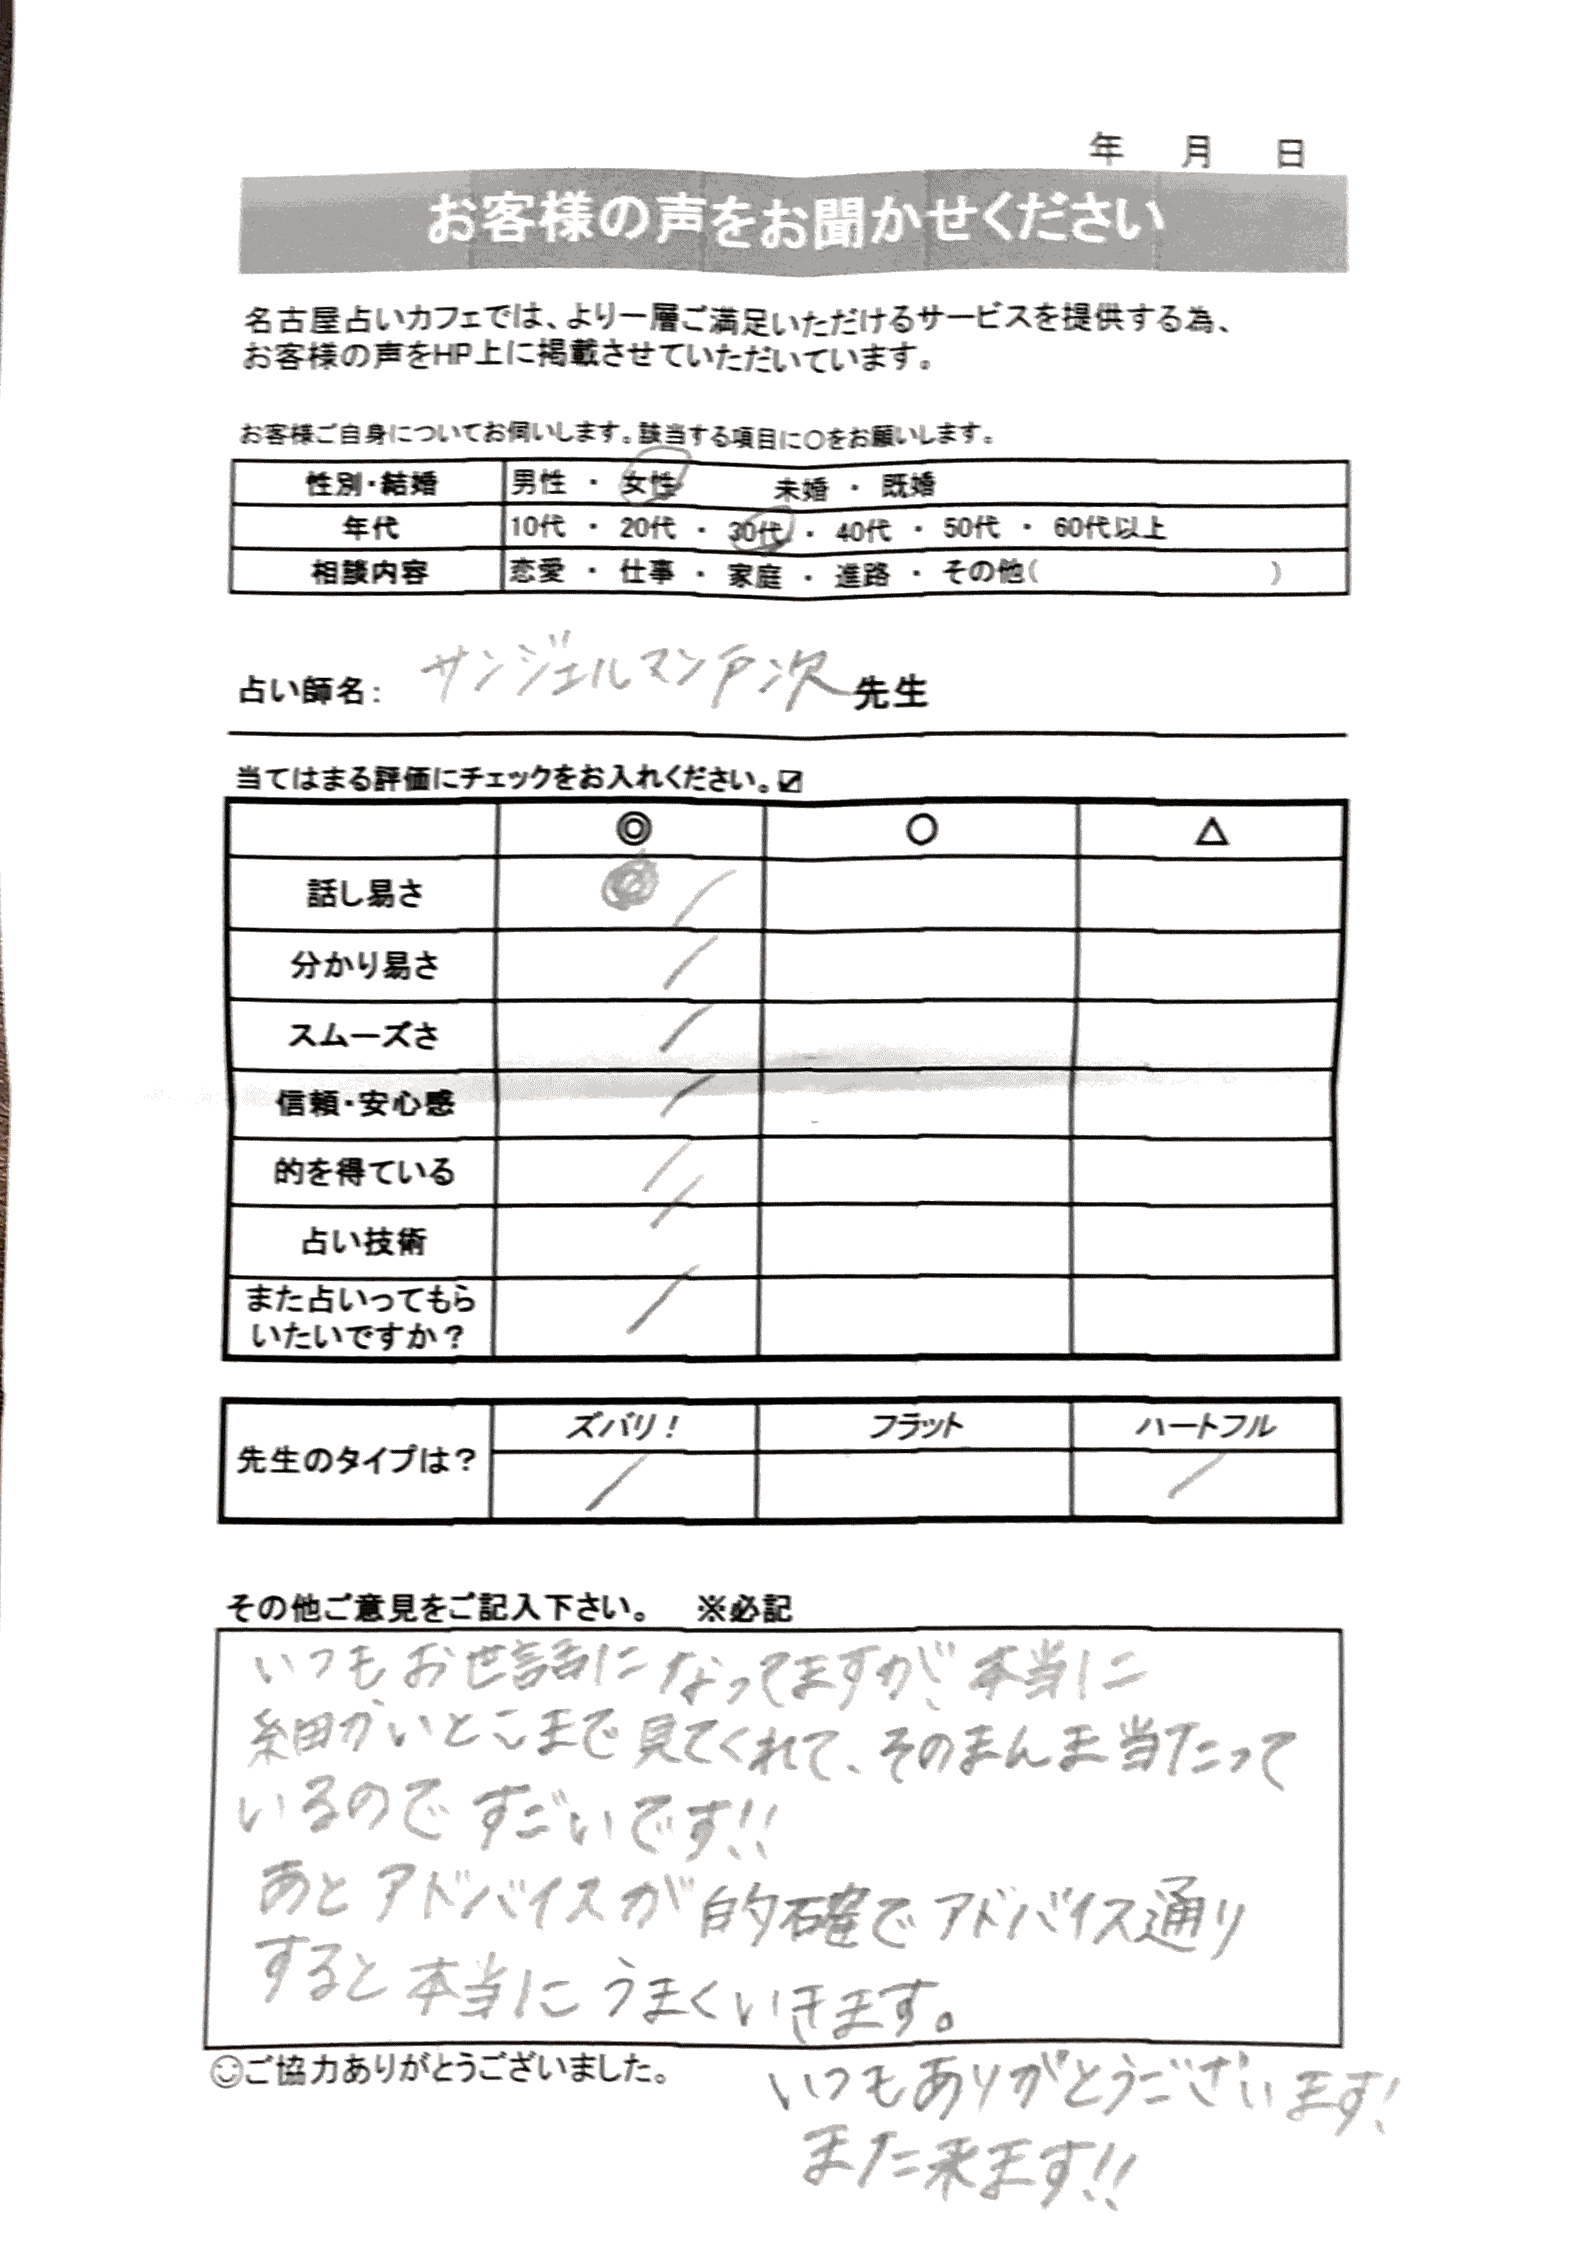 年 月 日
お客様の声をお聞かせください
名古屋占いカフェでは、より一層ご満足いただけるサービスを提供する為、
お客様の声をHP上に掲載させていただいています。
お客様ご自身についてお伺いします。該当する項目に○をお願いします。
性別・結婚 男性 ・ 女性 未婚 ・ 既婚
年代 10代 ・ 20代 ・ 30代 ・ 40代 ・ 50代 ・ 60代以上
相談内容 恋愛 ・ 仕事 ・ 家庭 ・ 進路 ・ その他( )
占い師名: サンジェルマン戸次先生
当てはまる評価にチェックをお入れください。☑
◎ ○ △
話し易さ
分かり易さ
スムーズさ
信頼・安心感
的を得ている
占い技術
また占いってもら
いたいですか?
ズバリ! フラット ハートフル
先生のタイプは?
その他ご意見をご記入下さい。 ※必記
いつもお世話になってますが、本当に
細かいとこまで見てくれて、そのまんま当たって
いるのですごいです!!
あとアドバイスが的確でアドバイス通り
すると本当にうまくいきます。
☺ご協力ありがとうございました。
いつもありがとうございます!
また来ます!!